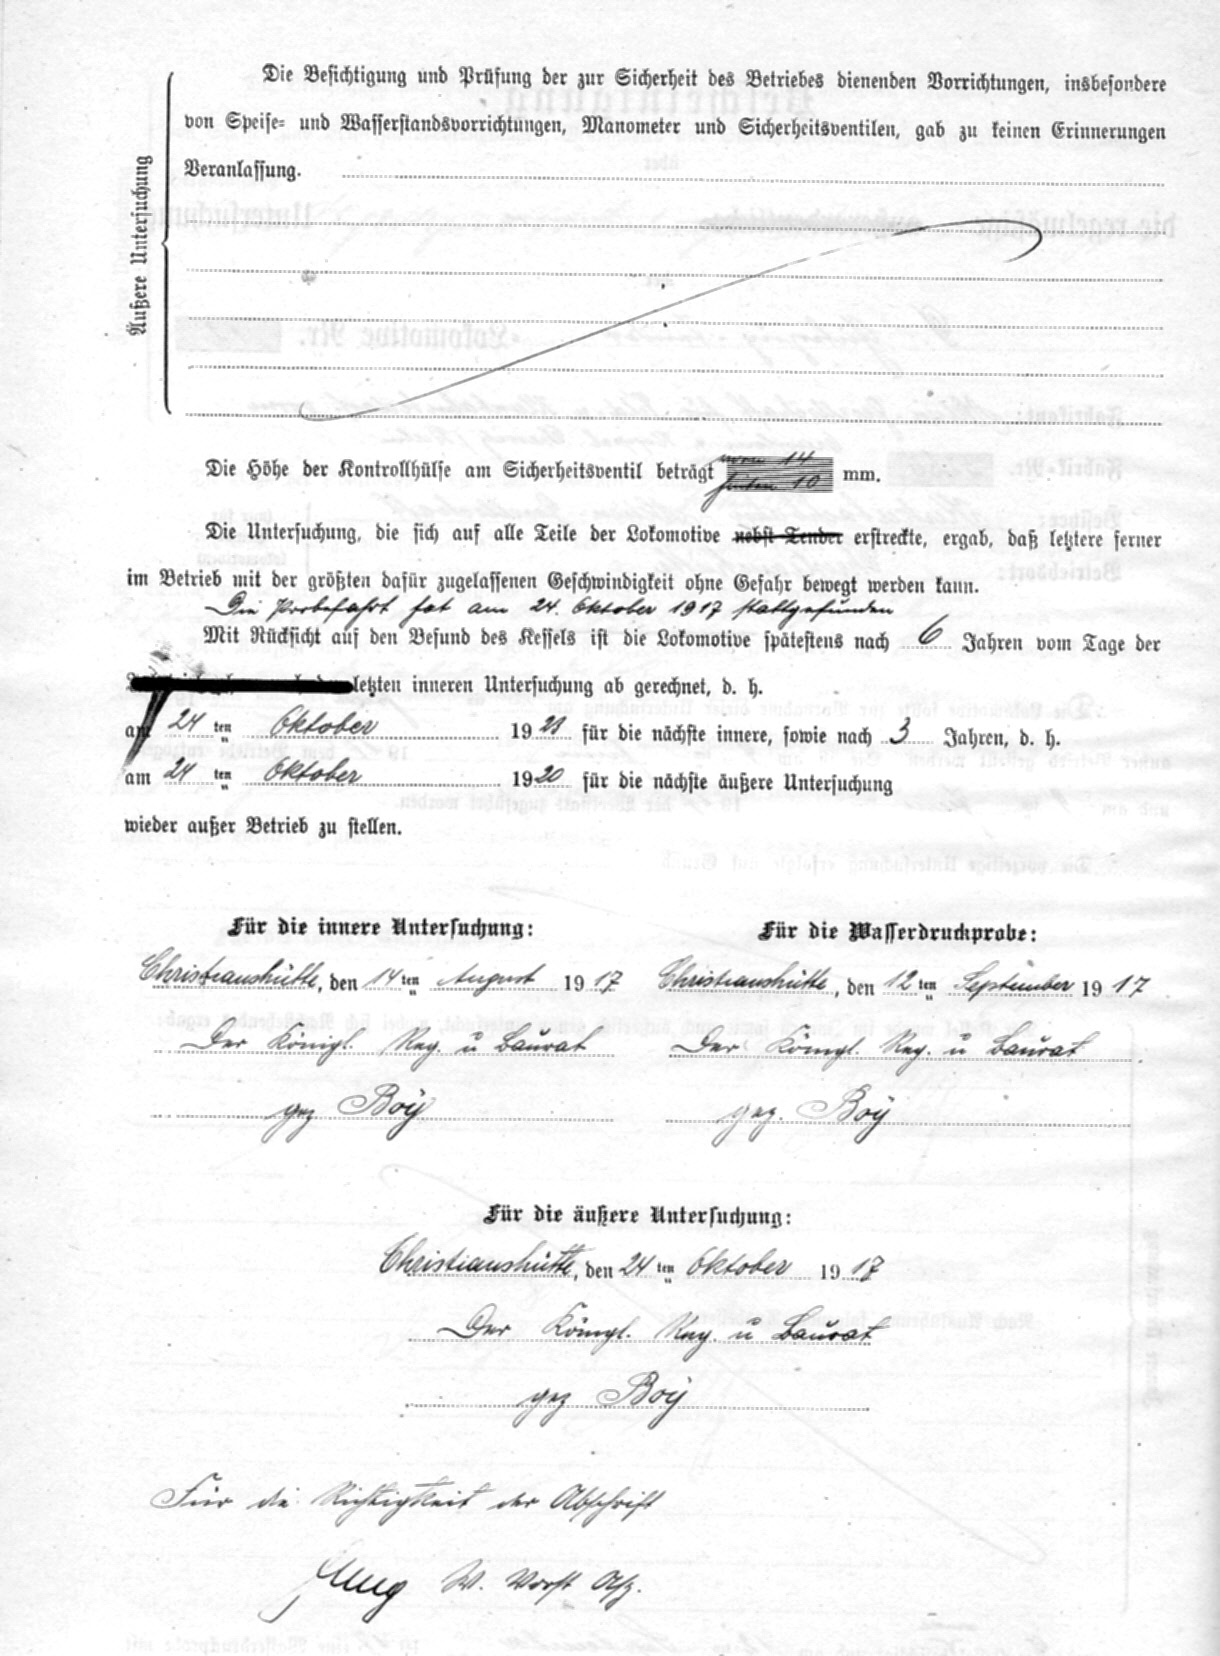 Äußere Untersuchung
Die Besichtigung und Prüfung der zur Sicherheit des Betriebes dienenden Vorrichtungen, insbesondere
von Speise= und Wasserstandsvorrichtungen, Manometer und Sicherheitsventilen, gab zu keinen Erinnerungen
Veranlassung.
Die Höhe der Kontrollhülse am Sicherheitsventil beträgt vorn 14 mm.
hinten 10
Die Untersuchung, die sich auf alle Teile der Lokomotive nebst Tender erstreckte, ergab, daß letztere ferner
im Betrieb mit der größten dafür zugelassenen Geschwindigkeit ohne Gefahr bewegt werden kann.
Die Probefahrt hat am 24. Oktober 1917 stattgefunden
Mit Rücksicht auf den Befund des Kessels ist die Lokomotive spätestens nach 6 Jahren vom Tage der
letzten inneren Untersuchung ab gerechnet, d. h.
am 24 ten Oktober 1923 für die nächste innere, sowie nach 3 Jahren, d. h.
am 24 ten Oktober 1920 für die nächste äußere Untersuchung
wieder außer Betrieb zu stellen.
Für die innere Untersuchung: Für die Wasserdruckprobe:
Christianshütte, den 14 ten August 1917 Christianshütte, den 12 ten September 1917
Der Königl. Reg. u Baurat Der Königl. Reg. u Baurat
gez Boÿ gez. Boÿ
Für die äußere Untersuchung:
Christianshütte, den 24 ten Oktober 1917
Der Königl. Reg. u Baurat
gez Boÿ
Für die Richtigkeit der Abschrift
W.